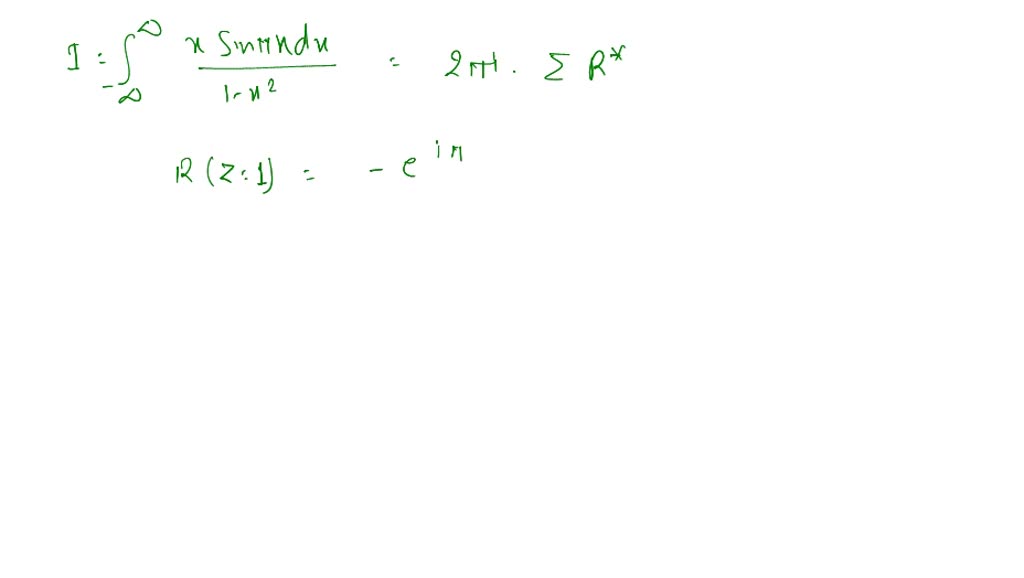 I = ∫_{-∞}^{∞} x sin πx dx / 1-x² = 2πi · Σ R*
R(z=1) = - e^{iπ}